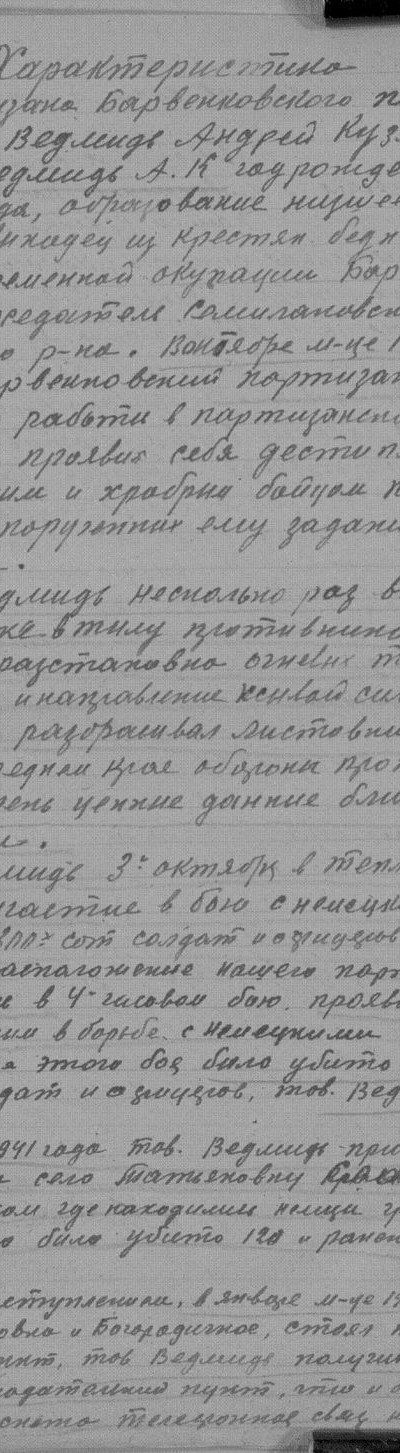 Характеристика
зана Барвенковского п
Ведмидь Андрей Куз
едмидь А.К год рожде
да, образование низшее
ыходец из крестян бедн
еменной окупации Бар
седатель Семигановск
о р-на. Воктябре м-це 1
рвенковский партизан
работы в партизанско
проявил себя дестипл
им и храбрым бойцом
порученних ему задани
едмидь несколько раз в
же втилу противника
разстановка огневих т
и направление живой сил
разбрасивал листовки
еднем крае обороны прот
рень ценние данние бли
мидь 3го октября в
участие в бою с немецки
сот солдат и офицеров
асположение нашего парт
е в 4х часовом бою. прояви
им в борьбе с немецкими
я этого боя било убито
дат и офицеров, тов. Вед
941 года тов. Ведмидь при
село Татьяновку
ом где находилис немци
о било убито 120 и ранен
ступлении, в январе м-це 19
овка и Богородичное, стоял
ункт, тов Ведмидь получи
юдательний пункт, что и
телефонная связ